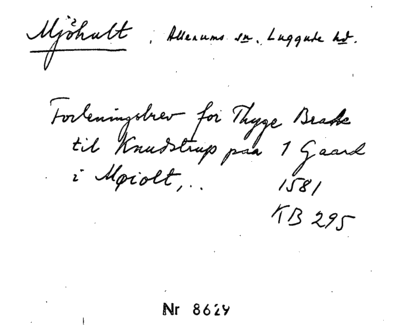 Mjöhult, Allerums sn. Luggude hd.
Forleningsbrev for Thyge Brahe
til Knudstrup paa 1 Gaard
i Møiolt,..    1581
KB 295
Nr 8629